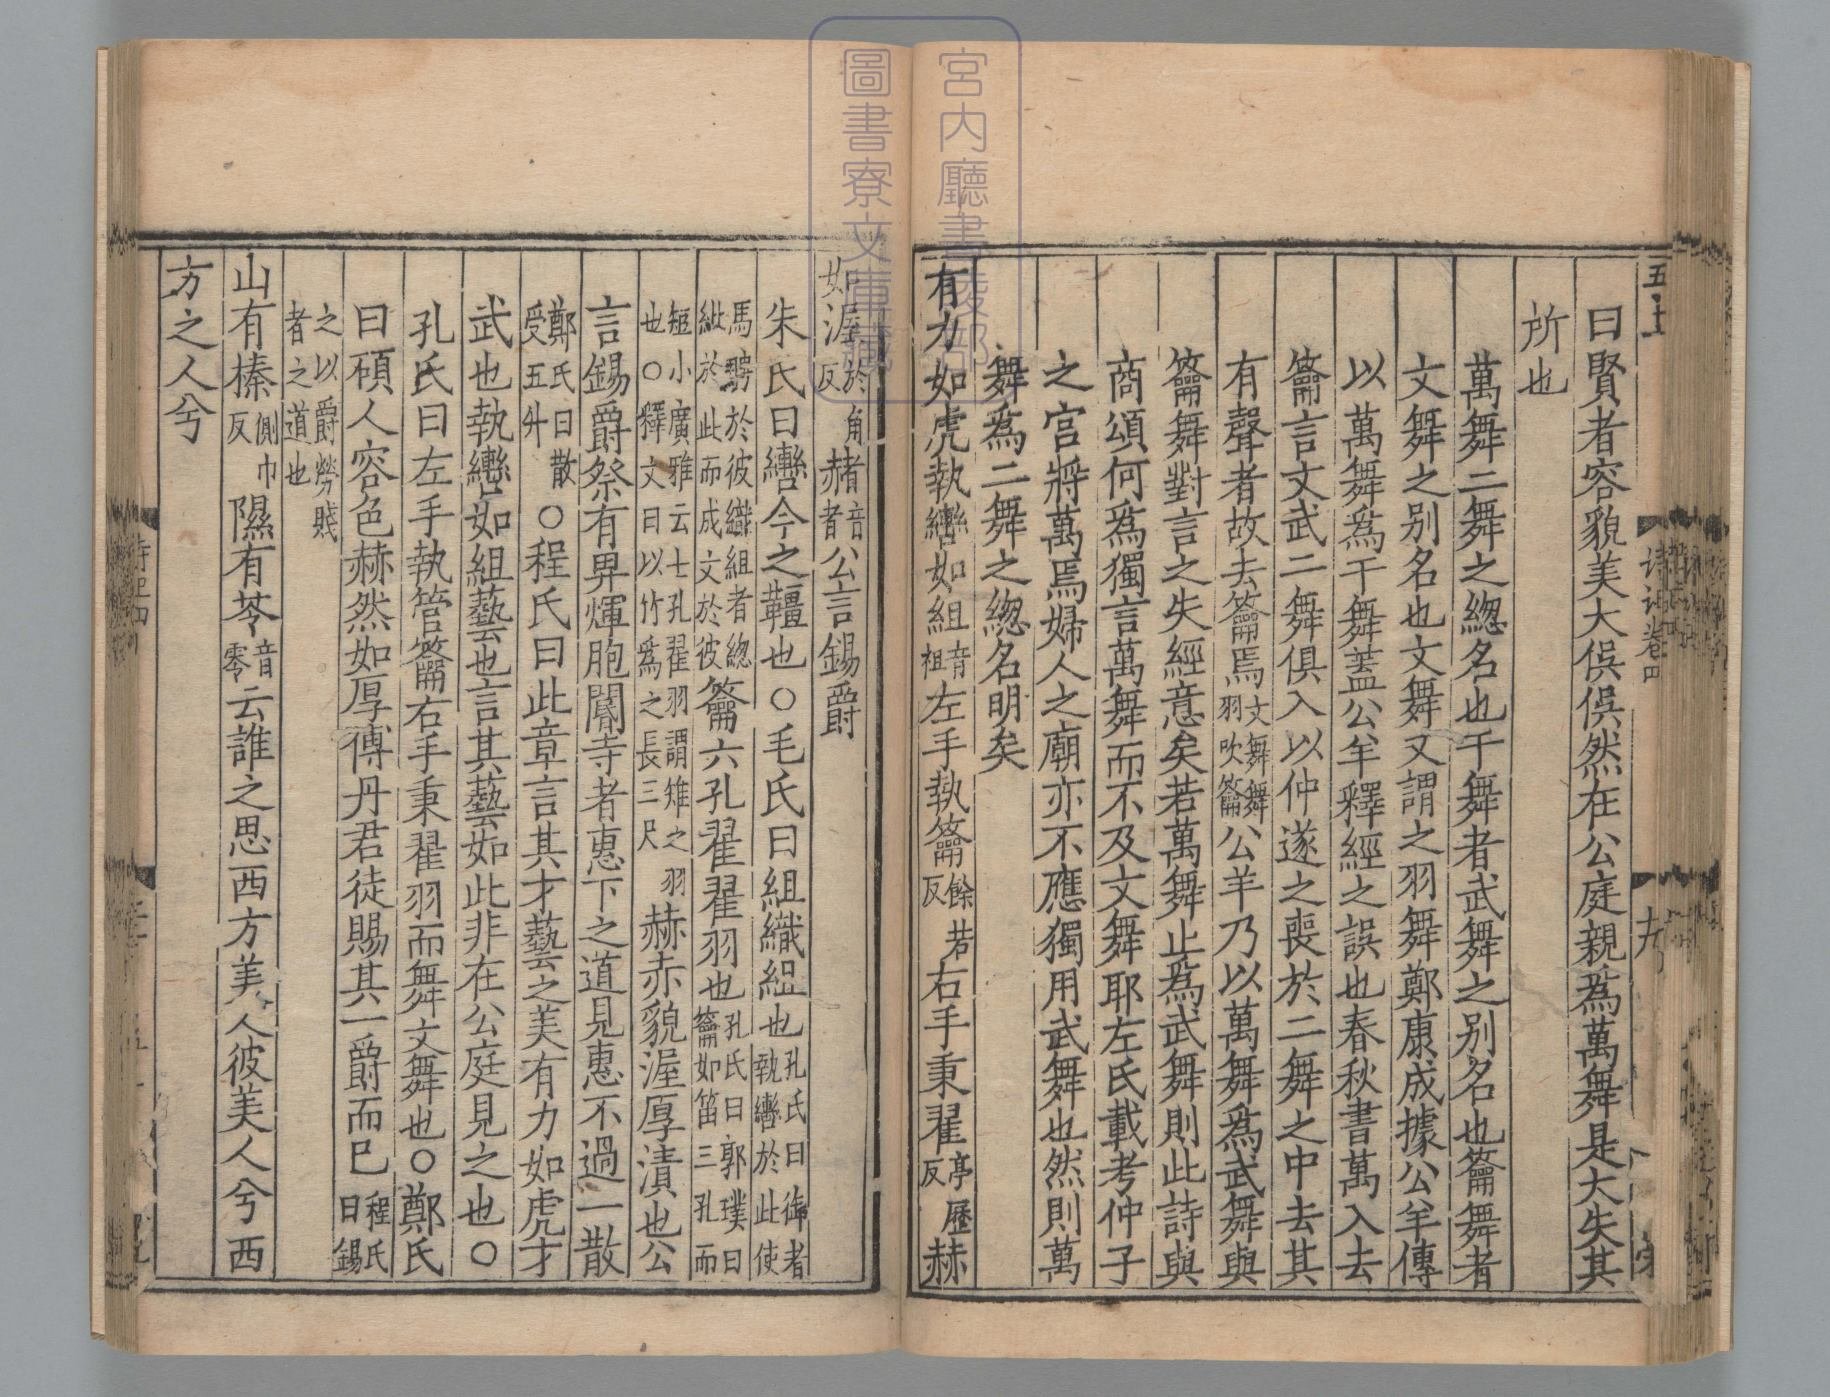 曰賢者容貌美大俁俁然在公庭親為萬舞是大失其
所也
萬舞二舞之緫名也干舞者武舞之别名也籥舞者
文舞之别名也文舞又謂之羽舞鄭康成據公羊傳
以萬舞為干舞蓋公羊釋經之誤也春秋書萬入去
籥言文武二舞俱入以仲遂之喪於二舞之中去其
有聲者故去籥焉文舞舞羽吹籥公羊乃以萬舞為武舞與
籥舞對言之失經意矣若萬舞止為武舞則此詩與
商頌何為獨言萬舞而不及文舞耶左氏載考仲子
之宮將萬焉婦人之廟亦不應獨用武舞也然則萬
舞為二舞之緫名明矣
有力如虎執轡如組音祖左手執籥餘若反右手秉翟亭歷反赫
如渥於角反赭音者公言錫爵
朱氏曰轡今之韁也○毛氏曰組織組也孔氏曰御者執轡於此使
馬騁於彼織組者緫紕於此而成文於彼籥六孔翟翟羽也孔氏曰郭璞曰籥如笛三孔而
短小廣雅云七孔翟羽謂雉之羽也○釋文曰以竹為之長三尺赫赤貌渥厚漬也公
言錫爵祭有畀煇胞閽寺者惠下之道見惠不過一散
鄭氏曰散受五升○程氏曰此章言其才藝之美有力如虎才
武也執轡如組藝也言其藝如此非在公庭見之也○
孔氏曰左手執管籥右手秉翟羽而舞文舞也○鄭氏
曰碩人容色赫然如厚傅丹君徒賜其一爵而已程氏曰錫
之以爵勞賤者之道也
山有榛側巾反隰有苓音零云誰之思西方美人彼美人兮西
方之人兮
詩記卷四
宮内廳書陵部
圖書寮文庫藏